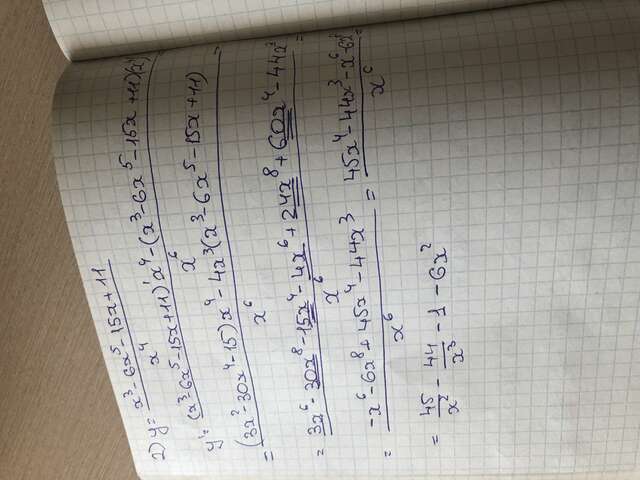 2) y = (x³-6x⁵-15x+11)/x⁴
y' = ((x³-6x⁵-15x+11)'x⁴-(x³-6x⁵-15x+11)(x⁴)')/x⁶ =
= ((3x²-30x⁴-15)x⁴-4x³(x³-6x⁵-15x+11))/x⁶ =
= (3x⁶-30x⁸-15x⁴-4x⁶+24x⁸+60x⁴-44x³)/x⁶ =
= (-x⁶-6x⁸+45x⁴-44x³)/x⁶ = (45x⁴-44x³-x⁶-6x⁸)/x⁶ =
= 45/x² - 44/x³ - 1 - 6x²